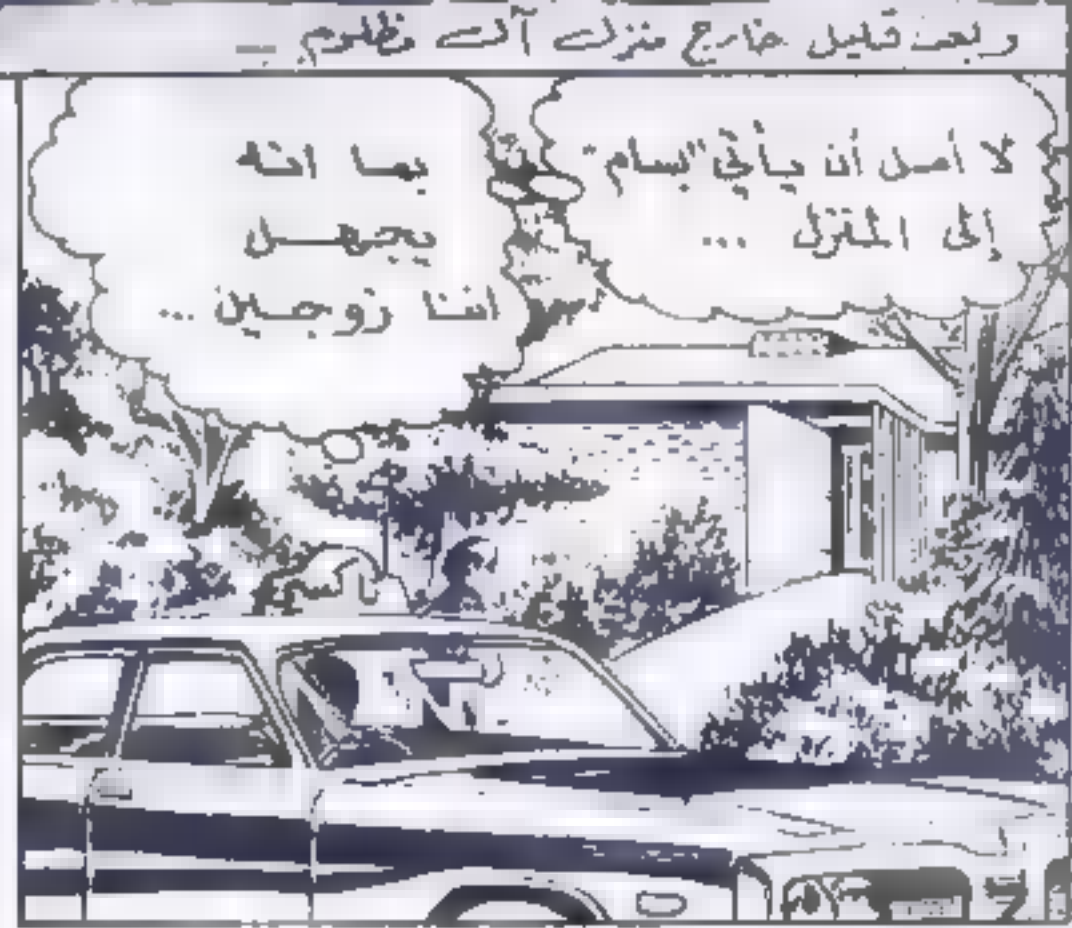 وبعد قليل خارج منزل آل مظلوم
لا أصل أن يأتي "بسام"
إلى المنزل ...
بما انه
يجهل
اننا زوجين ...